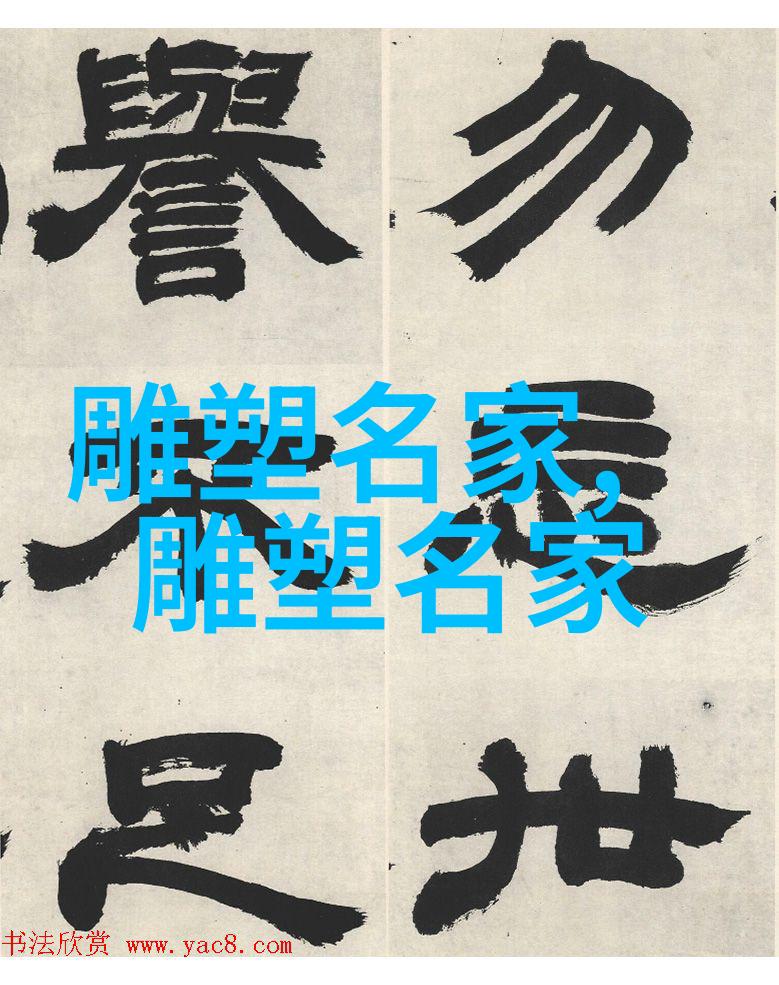 雕塑名家,
雕塑名家
勿忘世
譽不足
书法欣赏 www.yac8.com